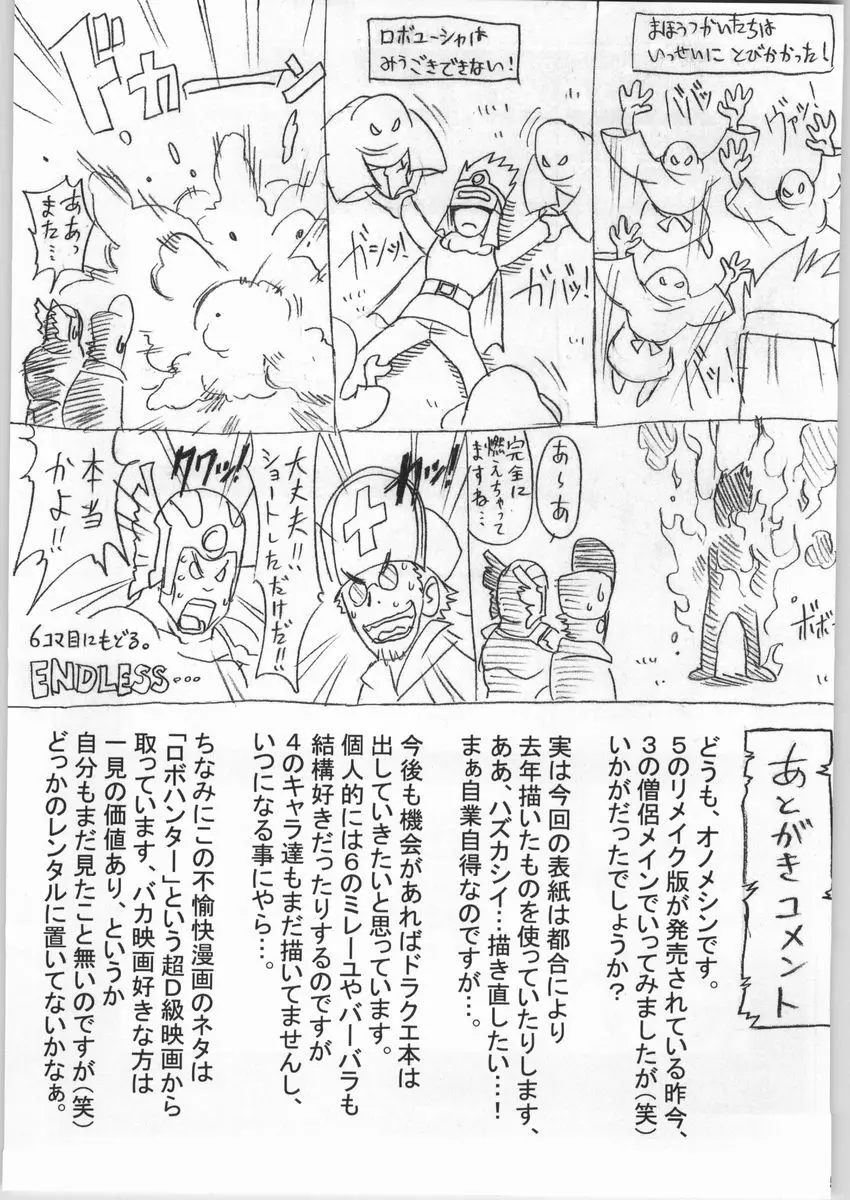 まほうつかいたちは
いっせいに とびかかった!
ババッ
ヴァッ!
バッ!
ロボユーシャは
みうごきできない!
ガシッ!
ガバッ!
ドカーーン
ああっ
また…
ボボ
あ〜あ
完全に
燃えちゃって
ますね…
クワッ!
大丈夫!!
ショートしただけだ!!
クワッ!
本当
かよ!!
6コマ目にもどる。
ENDLESS…
あとがきコメント
どうも、オノメシンです。
5のリメイク版が発売されている昨今、
3の僧侶メインでいってみましたが(笑)
いかがだったでしょうか?
実は今回の表紙は都合により
去年描いたものを使っていたりします、
ああ、ハズカシイ…描き直したい…!
まぁ自業自得なのですが…。
今後も機会があればドラクエ本は
出していきたいと思っています。
個人的には6のミレーユやバーバラも
結構好きだったりするのですが
4のキャラ達もまだ描いてませんし、
いつになる事にやら…。
ちなみにこの不愉快漫画のネタは
「ロボハンター」という超D級映画から
取っています、バカ映画好きな方は
一見の価値あり、というか
自分もまだ見たこと無いのですが(笑)
どっかのレンタルに置いてないかなぁ。